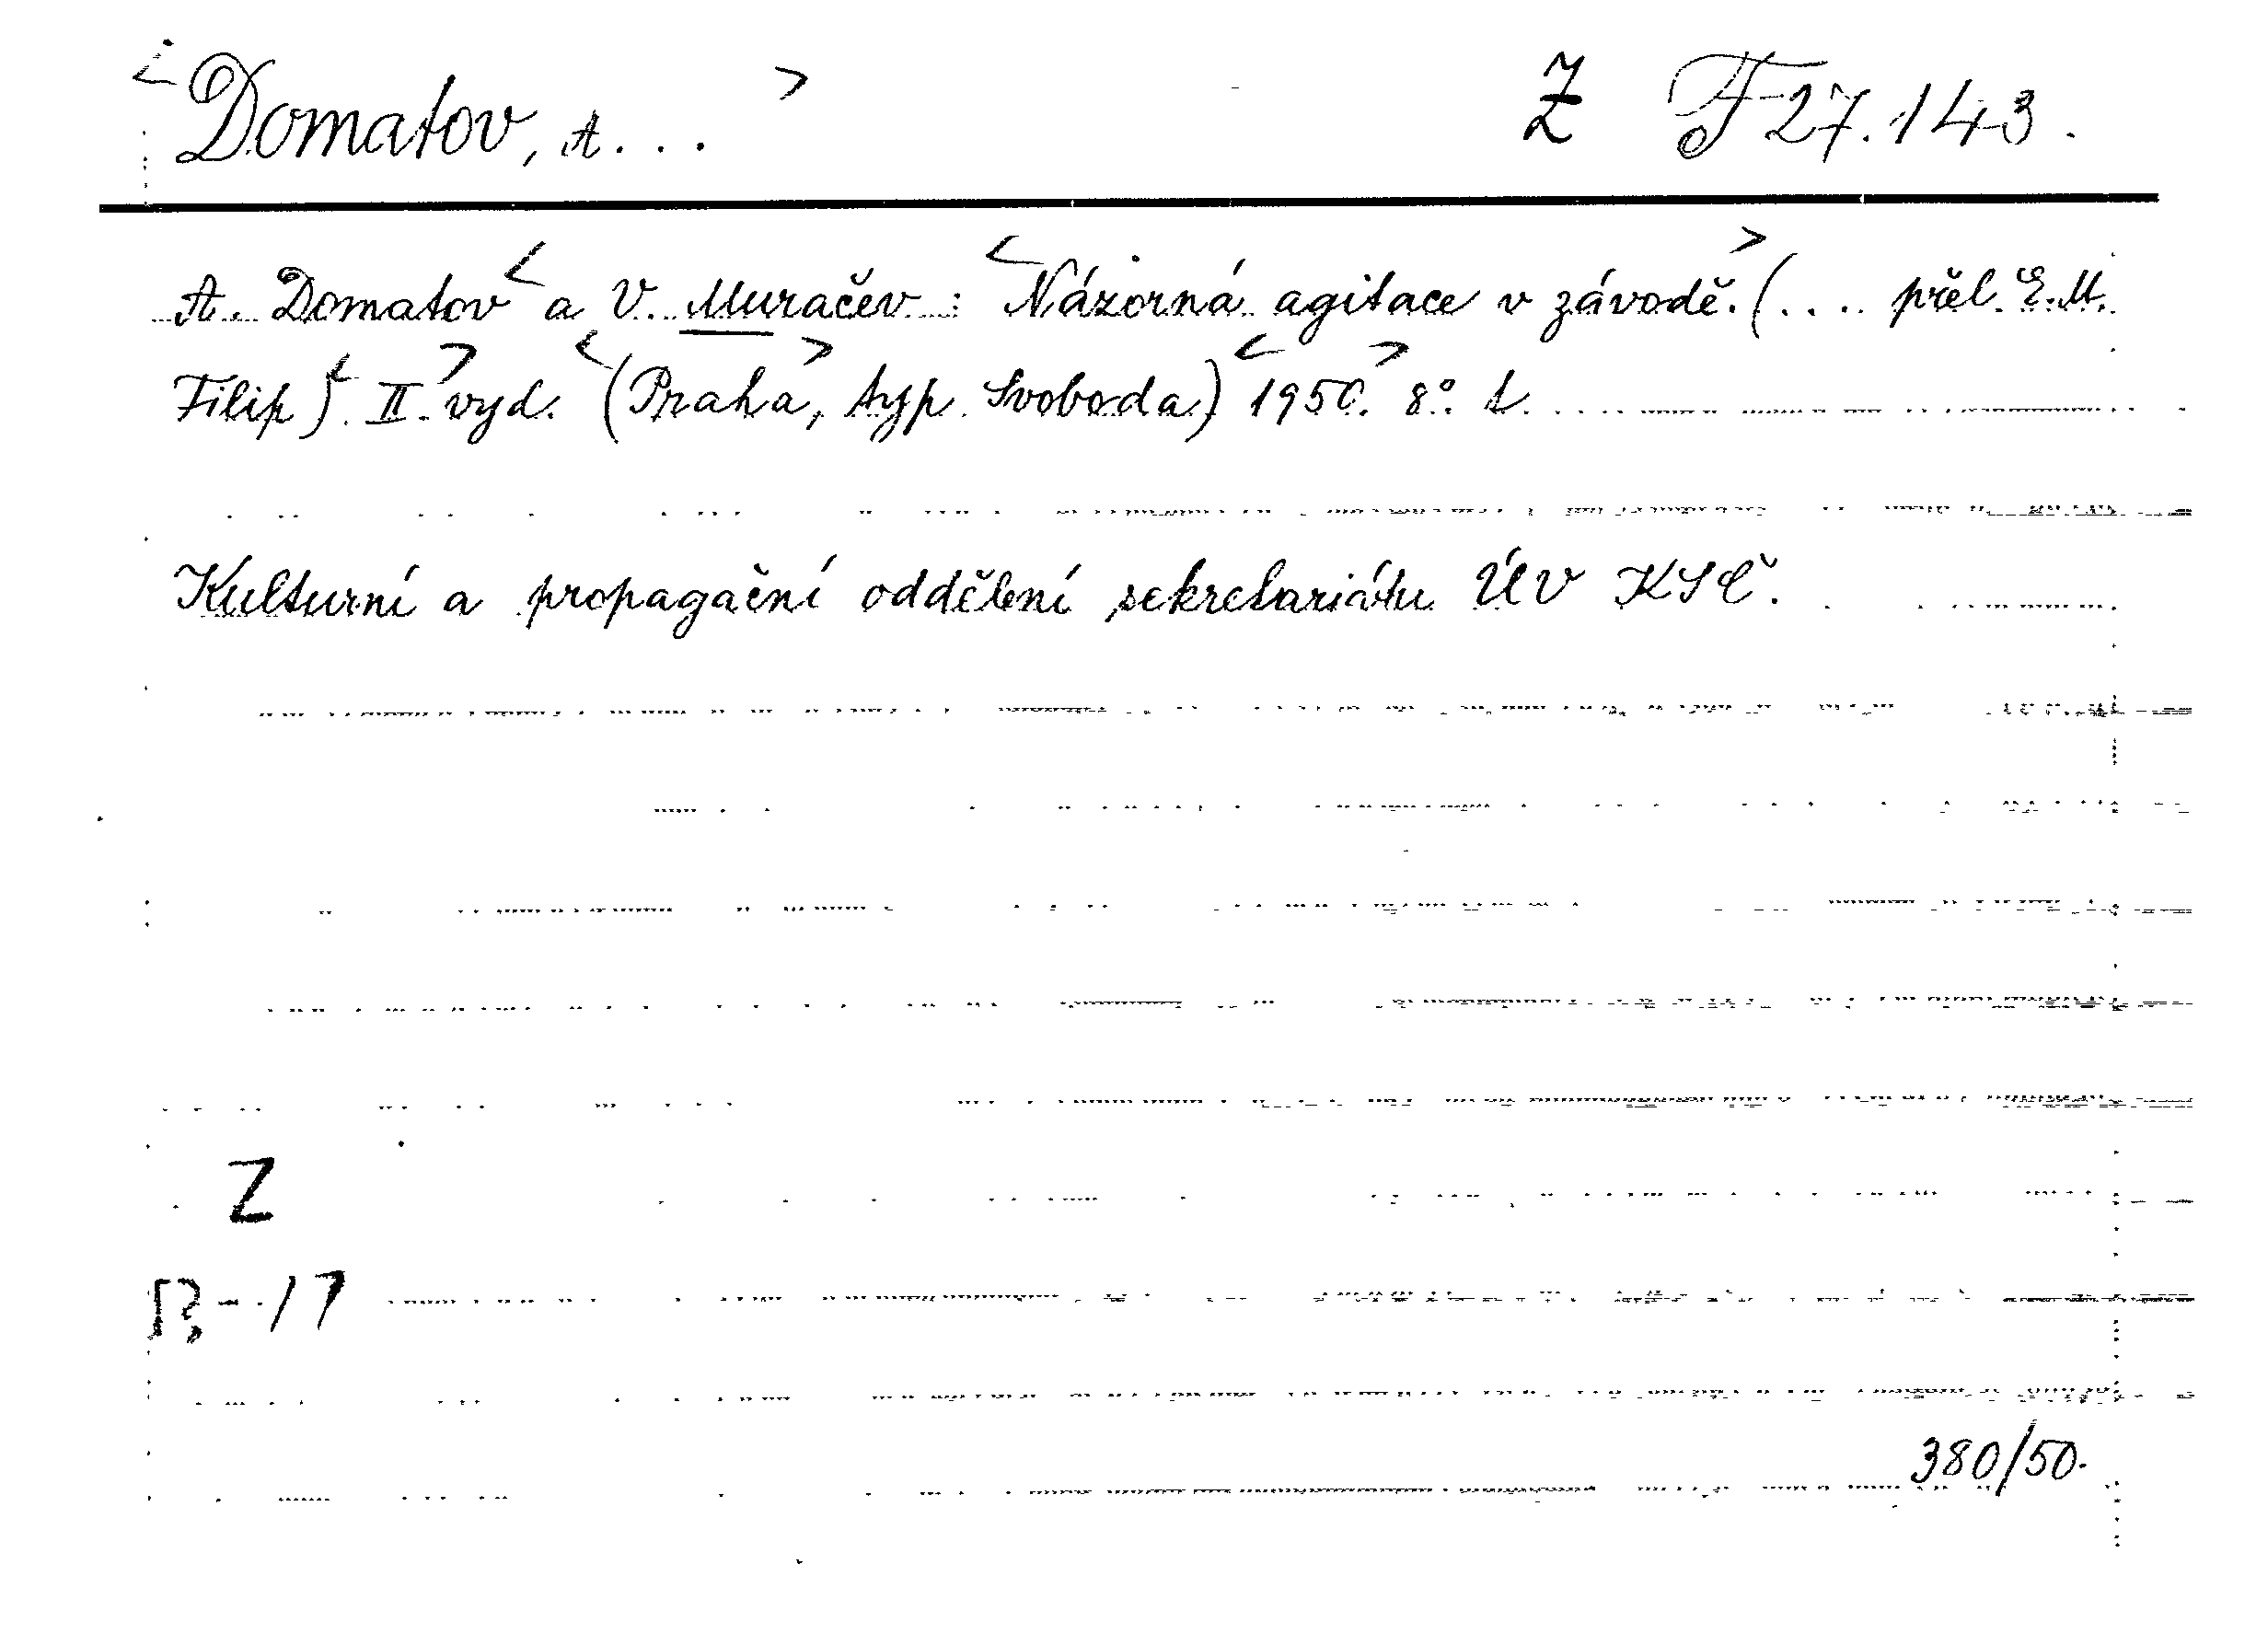 <Domatov, A...> Z F 27.143.
A. Domatov < a V. Muračev: <Názorná agitace v závodě.> (.... přel. E. M.
Filip). < II. > vyd. <(Praha>, typ. Svoboda) <1950.> 8°. t.
Kulturní a propagační oddělení sekretariátu ÚV KSČ.
Z
-17
380/50.